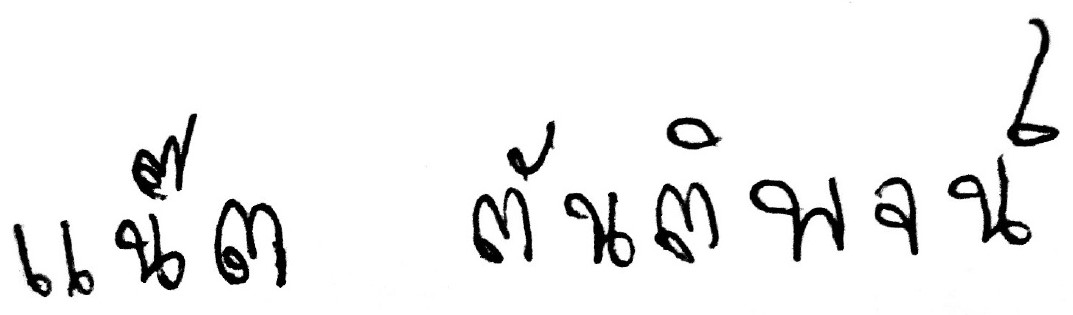 แน๊ต ตันติพจน์